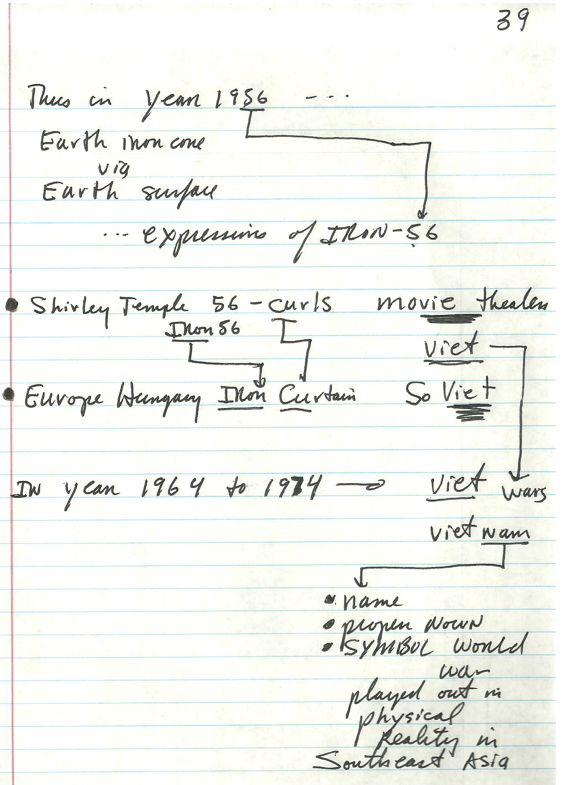 39
Thus in year 1956 ----
Earth iron core
via
Earth surface
... expressions of IRON-56
• Shirley Temple 56 - curls movie theaters
Iron 56
viet
• Europe Hungary Iron Curtain So Viet
IN year 1964 to 1974 → viet wars
viet nam
• name
• proper NOUN
• SYMBOL World
war
played out in
physical
reality in
Southeast Asia